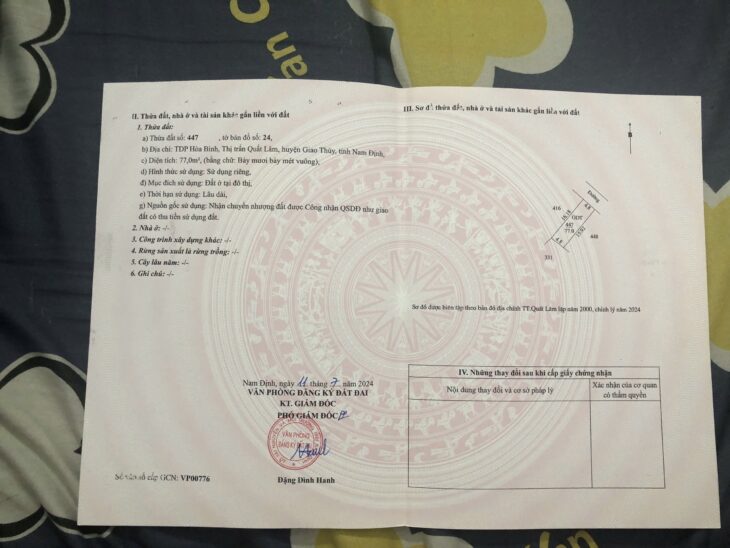 II. Thửa đất, nhà ở và tài sản khác gắn liền với đất
1. Thửa đất:
a) Thửa đất số: 447 , tờ bản đồ số: 24,
b) Địa chỉ: TDP Hòa Bình, Thị trấn Quất Lâm, huyện Giao Thủy, tỉnh Nam Định,
c) Diện tích: 77,0m², (bằng chữ: Bảy mươi bảy mét vuông),
d) Hình thức sử dụng: Sử dụng riêng,
đ) Mục đích sử dụng: Đất ở tại đô thị,
e) Thời hạn sử dụng: Lâu dài,
g) Nguồn gốc sử dụng: Nhận chuyển nhượng đất được Công nhận QSDĐ như giao
đất có thu tiền sử dụng đất.
2. Nhà ở: -/-
3. Công trình xây dựng khác: -/-
4. Rừng sản xuất là rừng trồng: -/-
5. Cây lâu năm: -/-
6. Ghi chú: -/-
Nam Định, ngày 11 tháng 7 năm 2024
VĂN PHÒNG ĐĂNG KÝ ĐẤT ĐAI
KT. GIÁM ĐỐC
PHÓ GIÁM ĐỐC
VĂN PHÒNG
ĐĂNG KÝ ĐẤT ĐAI
Đặng Đình Hanh
Số vào sổ cấp GCN: VP00776
III. Sơ đồ thửa đất, nhà ở và tài sản khác gắn liền với đất
B
Đường
416
4.8
ODT
16.18
447
77.0
15.92
448
4.8
Sơ đồ được biên tập theo bản đồ địa chính TT.Quất Lâm lập năm 2000, chỉnh lý năm 2024
IV. Những thay đổi sau khi cấp giấy chứng nhận
Nội dung thay đổi và cơ sở pháp lý
Xác nhận của cơ quan
có thẩm quyền